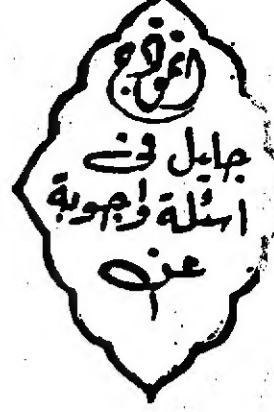 انموذج
جليل في
اسئلة واجوبة
عن